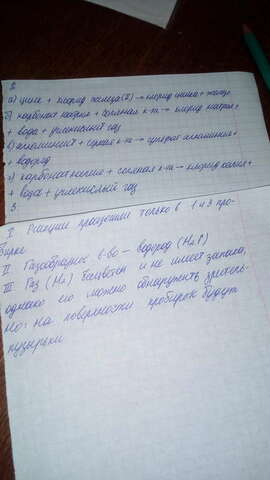 2.
а) цинк + хлорид железа (II) → хлорид цинка + железо
б) карбонат натрия + соляная к-та → хлорид натрия +
+ вода + углекислый газ
в) алюминий + серная к-та → сульфат алюминия +
водород
г) карбонат калия + соляная к-та → хлорид калия +
+ вода + углекислый газ
3.
I. Реакции произошли только в 1 и 3 про-
бирке
II Газообразное в-во – водород (H₂↑)
III Газ (H₂) бесцветен и не имеет запаха,
однако его можно обнаружить зритель-
но: на поверхности пробирок будут
пузырьки